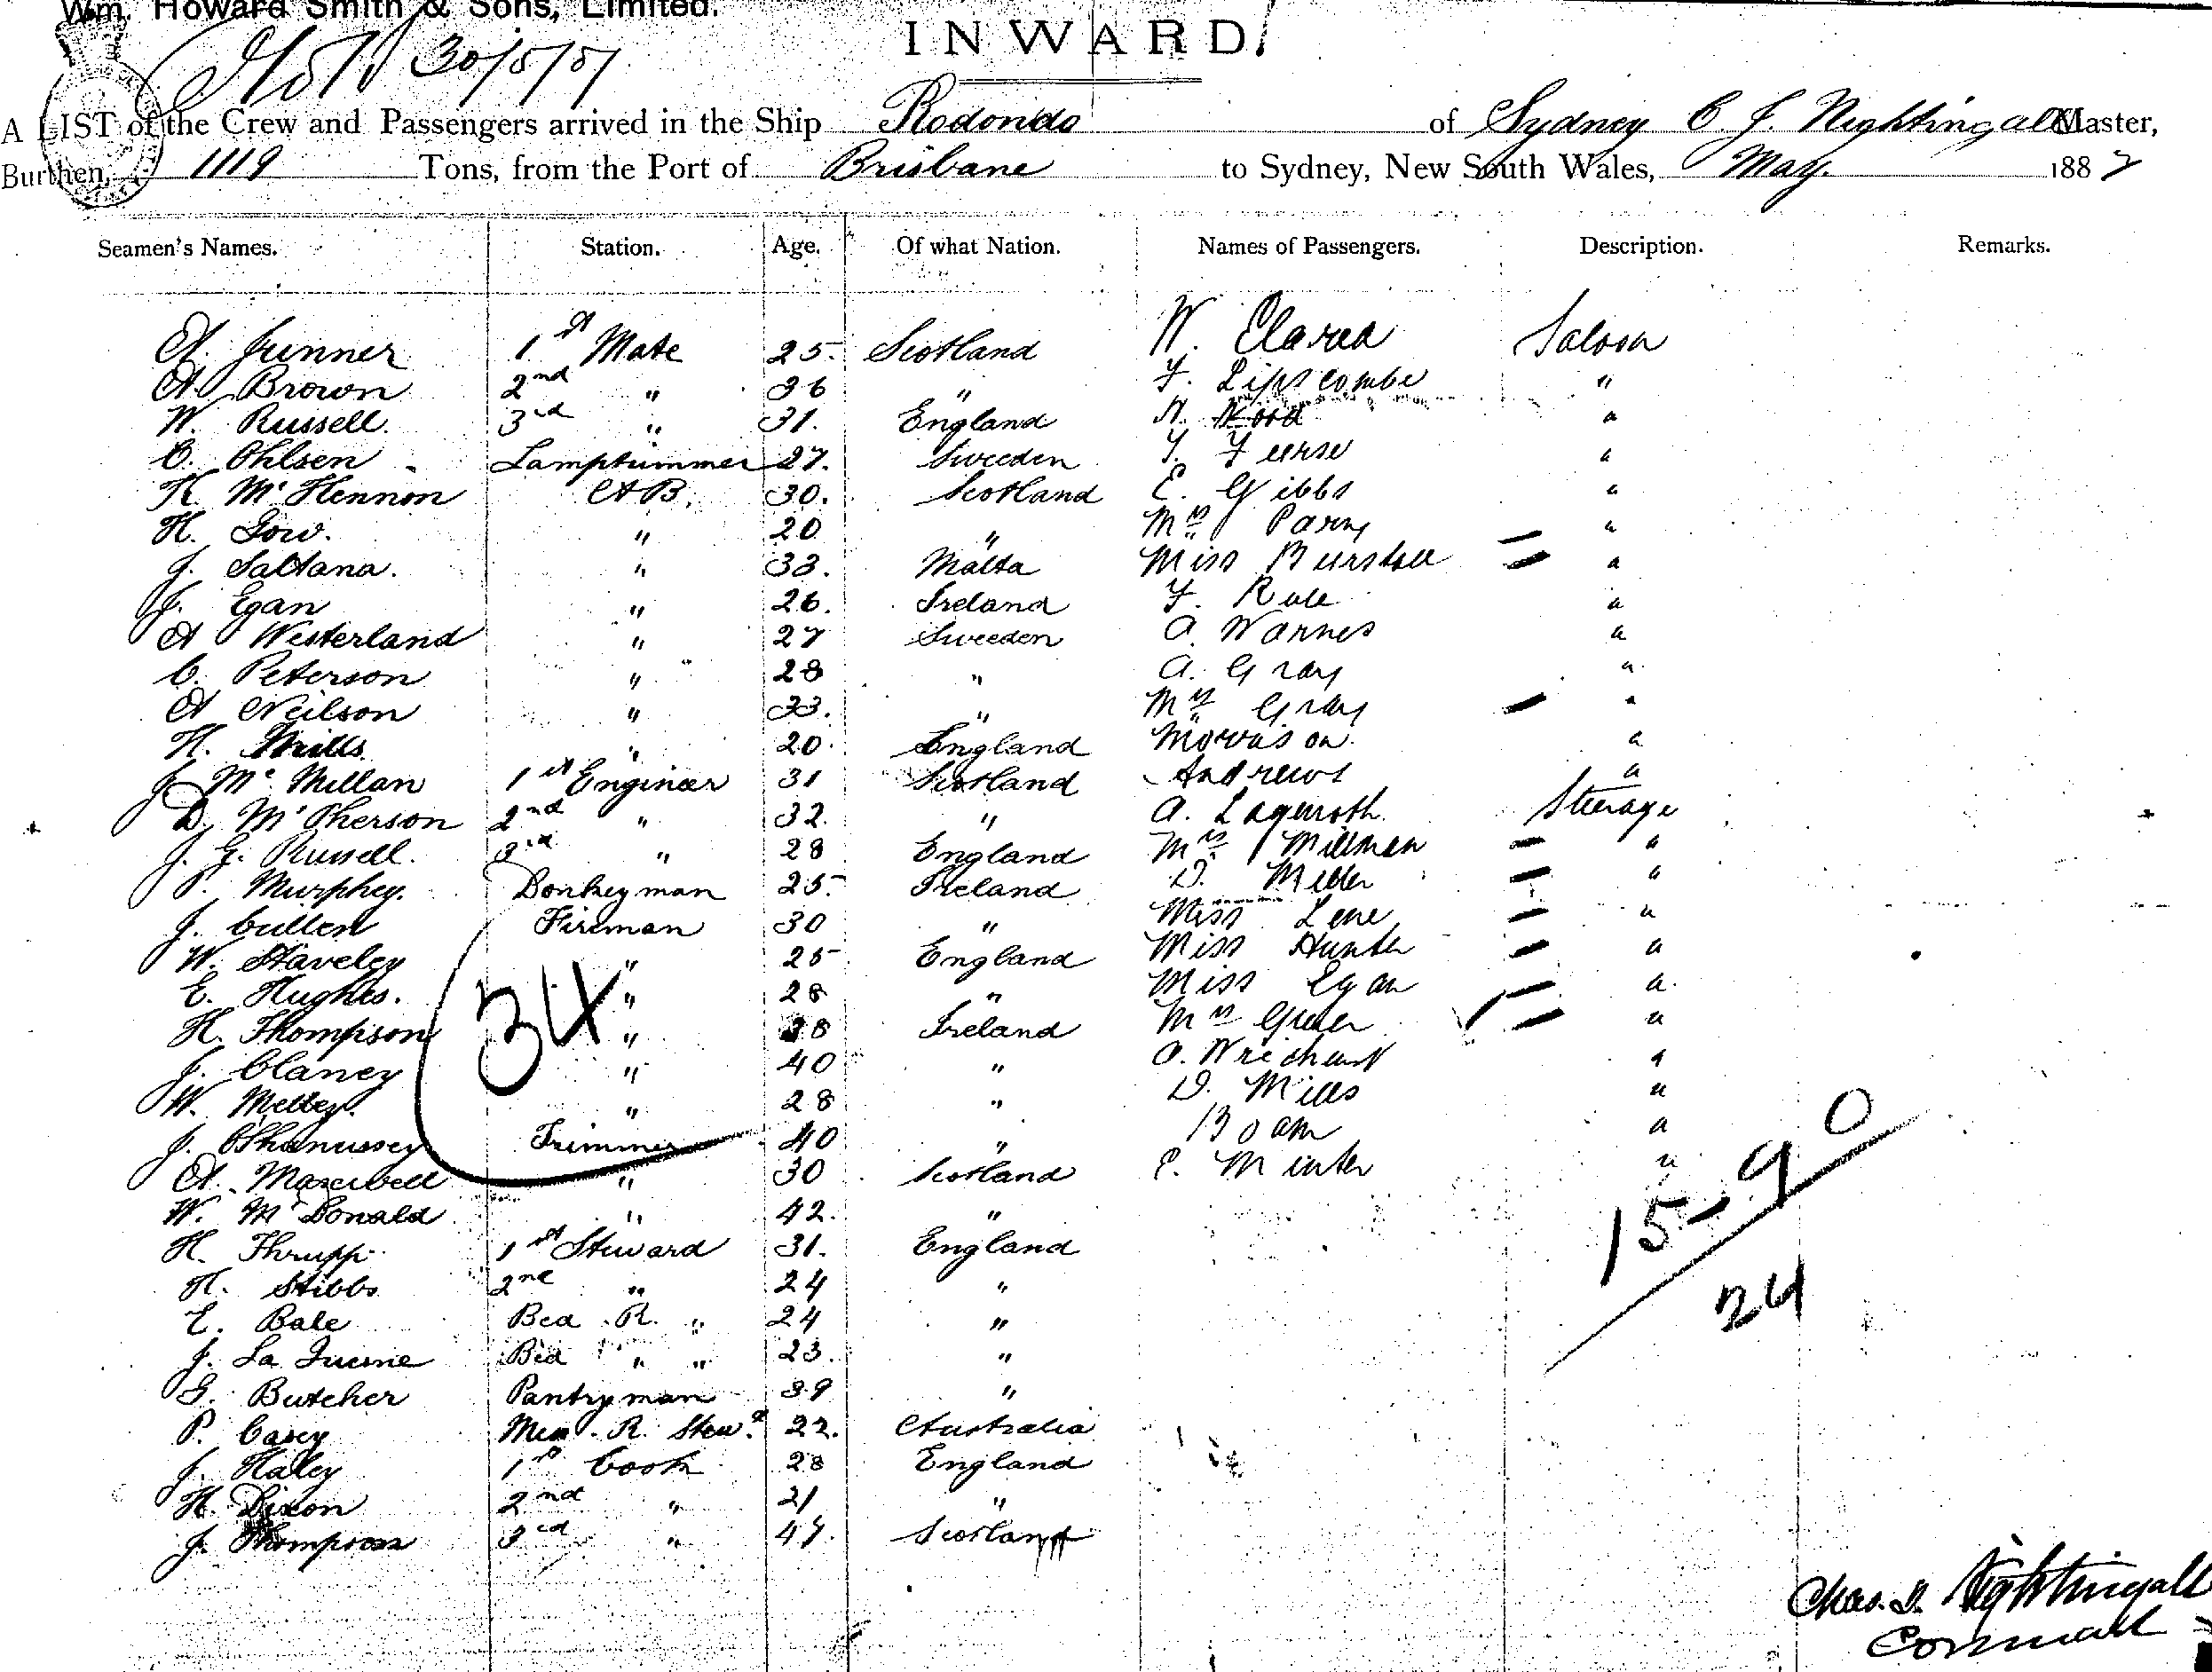 Wm. Howard Smith & Sons, Limited.
30/5/87
INWARD.
A LIST of the Crew and Passengers arrived in the Ship Rodondo of Sydney C. J. Nightingall Master,
Burthen, 1119 Tons, from the Port of Brisbane to Sydney, New South Wales, May. 1887
Seamen's Names. Station. Age. Of what Nation. Names of Passengers. Description. Remarks.
A. Junner 1st Mate 25. Scotland W. Clarea Saloon
A. Brown 2nd " 36 " F. Lipscombe "
W. Russell. 3rd " 31. England N. Wood "
C. Ohlsen Lamptrimmer 27. Sweeden F. Fearse "
K. McKlennon AB. 30. Scotland E. Gibbs "
H. Gow. " 20 " Mrs Parry "
J. Saltana. " 33. Malta Miss Burstall "
J. Egan " 26. Ireland F. Rule "
A Westerland " 27 Sweeden A. Warnes "
C. Peterson " 28 " A. Gray "
A Neilson " 33. " Mrs Gray "
H. Mills " 20. England Morrison "
J. McMillan 1st Engineer 31 Scotland Andrews "
D. McPherson 2nd " 32. " A. Steerage
J. G. Russell. 3rd " 28 England Mrs Millman "
P. Murphey. Donkeyman 25. Ireland D. Miller "
J. Cullen Fireman 30 " Miss Lene "
W. Staveley " 25 England Miss Hunter "
E. Hughes. " 28 " Miss Egan "
34
H. Thompson " 28 Ireland Mrs Greer "
J. Clancy " 40 " A. "
W. " 28 " D. Mills "
J. Trimmer 40 " Boam "
A. Maxwell " 30 Scotland E. Minter "
W. McDonald " 42. "
15-9 0
H. Thrupp 1st Steward 31. England
H. Stibbs 2nd " 24 "
24
E. Bale Bed R. " 24 "
J. La Quesne Bed " " 23. "
G. Butcher Pantryman 39 "
P. Casey Mess. R. Stewd 22. Australia
J. Haley 1st Cook 28 England
H. Dixon 2nd " 21 "
J. Thompson 3rd " 47. Scotland
Chas. J. Nightingall